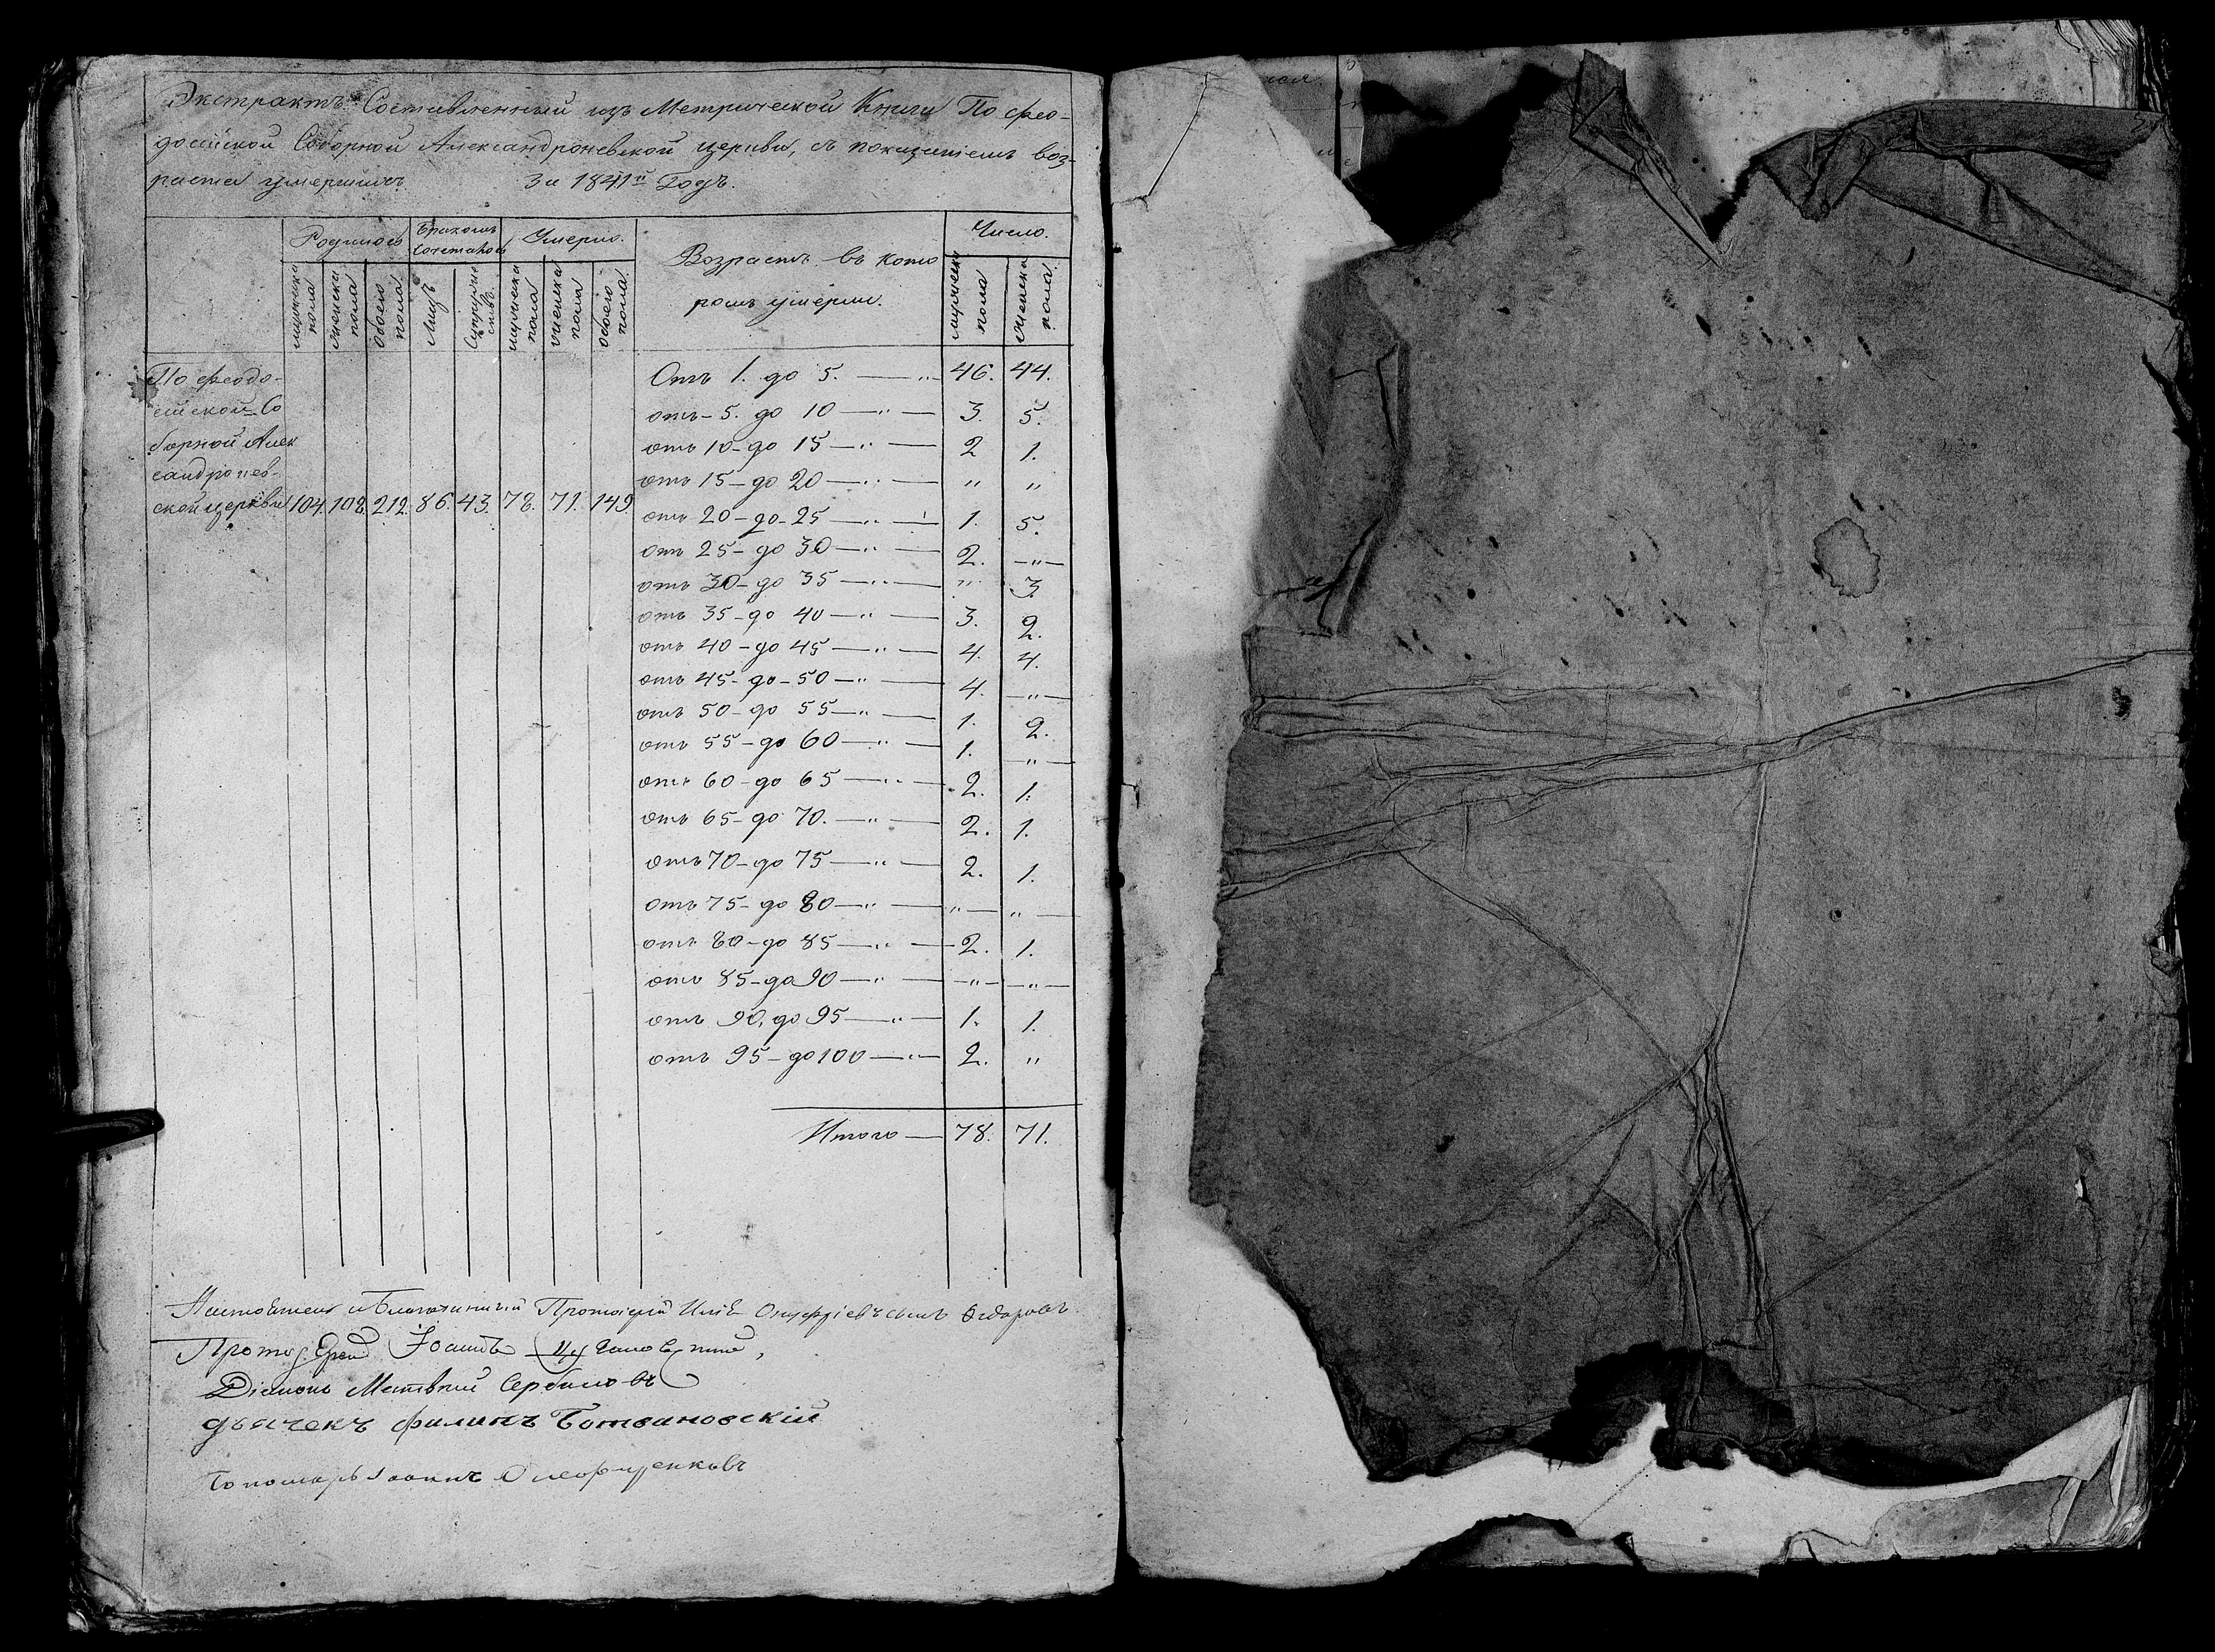 Экстрактъ Составленный изъ Метрической Книги По Ѳео-
досійской Соборной Александроневской церкви, съ показаніемъ воз-
раста умершихъ За 1841й Годъ.
Родилось Бракомъ сочеталось Умерло. Возрастъ въ кото Число.
ромъ умерли.
мужеска пола женска пола обоего пола Лицъ Супруже ствъ. мужеска пола женска пола обоего пола. мужеска пола женска пола.
По Ѳеодо-
сійской Со
борной Алек
сандронев-
ской церкви 104. 108. 212. 86. 43. 78. 71. 149.
Отъ 1. до 5. — „ — 46. 44.
отъ - 5. до 10 — „ — 3. 5.
отъ 10 - до 15 — „ — 2 1.
отъ 15 - до 20 — „ — „ „
отъ 20 - до - 25 — „ — 1. 5.
отъ 25 - до 30 — „ — 2. — „ —
отъ 30 - до 35 — „ — „ 3.
отъ 35 - до 40 — „ — 3. 2.
отъ 40 - до 45 — „ — 4. 4.
отъ 45 - до - 50 — „ — 4. — „ —
отъ 50 - до 55 — „ — 1. 2.
отъ 55 - до 60 — „ — 1. — „ —
отъ 60 - до 65 — „ — 2. 1.
отъ 65 - до 70. — „ — 2. 1.
отъ 70 - до 75 — „ — 2. 1.
отъ 75 - до 80 — „ — „ — „ —
отъ 80 - до 85 — „ — 2. 1.
отъ 85 - до 90 — „ — — „ — — „ —
отъ 90, до 95 — „ — 1. 1.
отъ 95 - до 100 — „ — 2. „
Итого — 78. 71.
Настоятель и Благочинный Протоіерей Илія Онуфріевъ сынъ Ѳедоровъ
Іоаннъ
Діаконъ Матвѣй Сербиновъ
дьячекъ Филипъ Ботвановскій
Пономарь